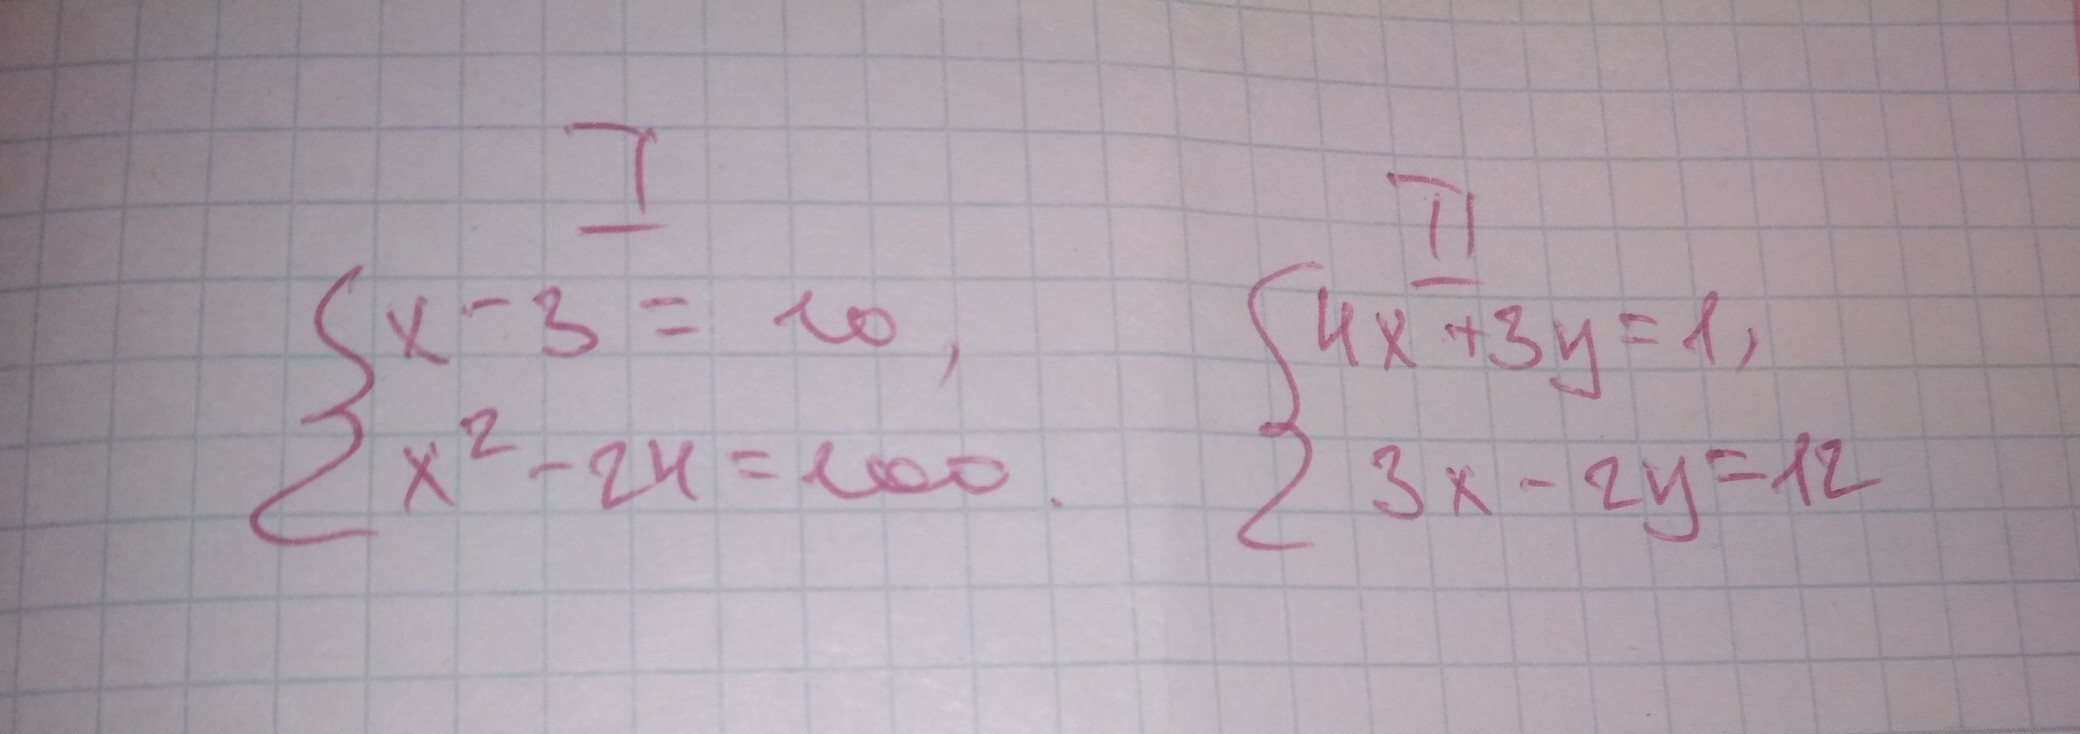 I
x - 3 = 10,
x² - 24 = 100.
II
4x + 3y = 1,
3x - 2y = 12